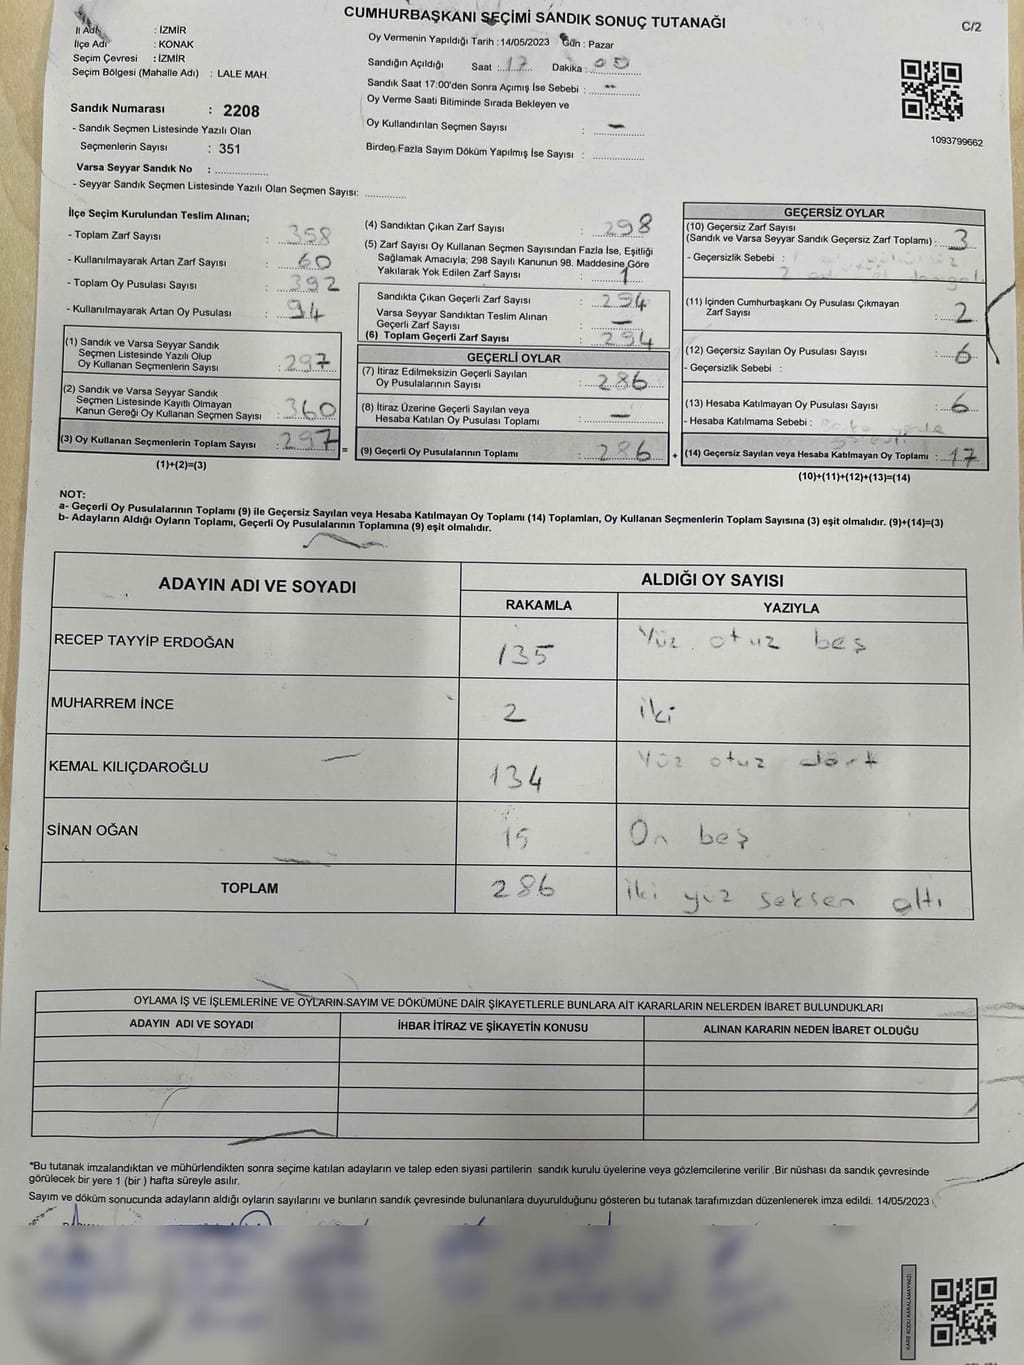 CUMHURBAŞKANI SEÇİMİ SANDIK SONUÇ TUTANAĞI
C/2
İl Adı : İZMİR
İlçe Adı : KONAK
Seçim Çevresi : İZMİR
Seçim Bölgesi (Mahalle Adı) : LALE MAH.
Sandık Numarası : 2208
- Sandık Seçmen Listesinde Yazılı Olan
Seçmenlerin Sayısı : 351
Varsa Seyyar Sandık No :
- Seyyar Sandık Seçmen Listesinde Yazılı Olan Seçmen Sayısı:
Oy Vermenin Yapıldığı Tarih : 14/05/2023 Gün : Pazar
Sandığın Açıldığı Saat : 17 Dakika : 05
Sandık Saat 17:00'den Sonra Açımış İse Sebebi : -
Oy Verme Saati Bitiminde Sırada Bekleyen ve
Oy Kullandırılan Seçmen Sayısı : -
Birden Fazla Sayım Döküm Yapılmış İse Sayısı :
1093799662
İlçe Seçim Kurulundan Teslim Alınan;
- Toplam Zarf Sayısı : 358
- Kullanılmayarak Artan Zarf Sayısı : 60
- Toplam Oy Pusulası Sayısı : 392
- Kullanılmayarak Artan Oy Pusulası : 94
(1) Sandık ve Varsa Seyyar Sandık
Seçmen Listesinde Yazılı Olup
Oy Kullanan Seçmenlerin Sayısı : 297
(2) Sandık ve Varsa Seyyar Sandık
Seçmen Listesinde Kayıtlı Olmayan
Kanun Gereği Oy Kullanan Seçmen Sayısı : 360
(3) Oy Kullanan Seçmenlerin Toplam Sayısı : 297 =
(1)+(2)=(3)
(4) Sandıktan Çıkan Zarf Sayısı : 298
(5) Zarf Sayısı Oy Kullanan Seçmen Sayısından Fazla İse, Eşitliği
Sağlamak Amacıyla; 298 Sayılı Kanunun 98. Maddesine Göre
Yakılarak Yok Edilen Zarf Sayısı : 1
Sandıkta Çıkan Geçerli Zarf Sayısı : 294
Varsa Seyyar Sandıktan Teslim Alınan
Geçerli Zarf Sayısı : -
(6) Toplam Geçerli Zarf Sayısı : 294
GEÇERLİ OYLAR
(7) İtiraz Edilmeksizin Geçerli Sayılan
Oy Pusulalarının Sayısı : 286
(8) İtiraz Üzerine Geçerli Sayılan veya
Hesaba Katılan Oy Pusulası Toplamı : -
(9) Geçerli Oy Pusulalarının Toplamı : 286 +
GEÇERSİZ OYLAR
(10) Geçersiz Zarf Sayısı
(Sandık ve Varsa Seyyar Sandık Geçersiz Zarf Toplamı) : 3
- Geçersizlik Sebebi :
(11) İçinden Cumhurbaşkanı Oy Pusulası Çıkmayan
Zarf Sayısı : 2
(12) Geçersiz Sayılan Oy Pusulası Sayısı : 6
- Geçersizlik Sebebi :
(13) Hesaba Katılmayan Oy Pusulası Sayısı : 6
- Hesaba Katılmama Sebebi :
(14) Geçersiz Sayılan veya Hesaba Katılmayan Oy Toplamı : 17
(10)+(11)+(12)+(13)=(14)
NOT:
a- Geçerli Oy Pusulalarının Toplamı (9) ile Geçersiz Sayılan veya Hesaba Katılmayan Oy Toplamı (14) Toplamları, Oy Kullanan Seçmenlerin Toplam Sayısına (3) eşit olmalıdır. (9)+(14)=(3)
b- Adayların Aldığı Oyların Toplamı, Geçerli Oy Pusulalarının Toplamına (9) eşit olmalıdır.
ADAYIN ADI VE SOYADI
ALDIĞI OY SAYISI
RAKAMLA
YAZIYLA
RECEP TAYYİP ERDOĞAN 135 Yüz otuz beş
MUHARREM İNCE 2 iki
KEMAL KILIÇDAROĞLU 134 Yüz otuz dört
SİNAN OĞAN 15 On beş
TOPLAM 286 iki yüz seksen altı
OYLAMA İŞ VE İŞLEMLERİNE VE OYLARIN SAYIM VE DÖKÜMÜNE DAİR ŞİKAYETLERLE BUNLARA AİT KARARLARIN NELERDEN İBARET BULUNDUKLARI
ADAYIN ADI VE SOYADI
İHBAR İTİRAZ VE ŞİKAYETİN KONUSU
ALINAN KARARIN NEDEN İBARET OLDUĞU
*Bu tutanak imzalandıktan ve mühürlendikten sonra seçime katılan adayların ve talep eden siyasi partilerin sandık kurulu üyelerine veya gözlemcilerine verilir .Bir nüshası da sandık çevresinde
görülecek bir yere 1 (bir ) hafta süreyle asılır.
Sayım ve döküm sonucunda adayların aldığı oyların sayılarını ve bunların sandık çevresinde bulunanlara duyurulduğunu gösteren bu tutanak tarafımızdan düzenlenerek imza edildi. 14/05/2023
KARE KODU KARALAMAYINIZ!